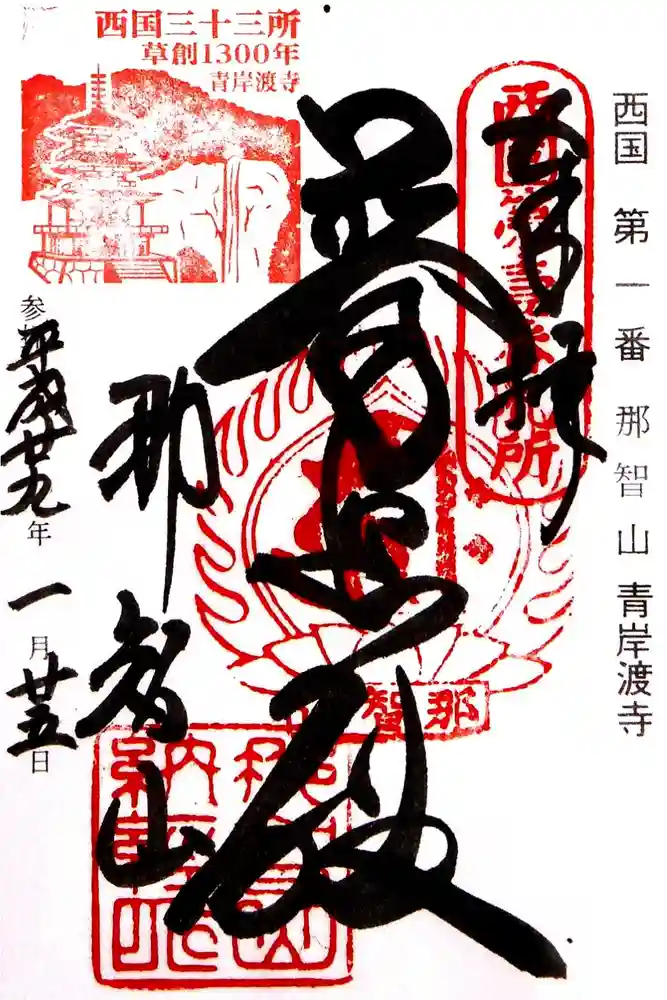 西国 第一番 那智山 青岸渡寺
奉拝
西国第壱番札所
普照殿
那智
那智山
西国三十三所
草創1300年
青岸渡寺
平成廿九年 一月廿五日